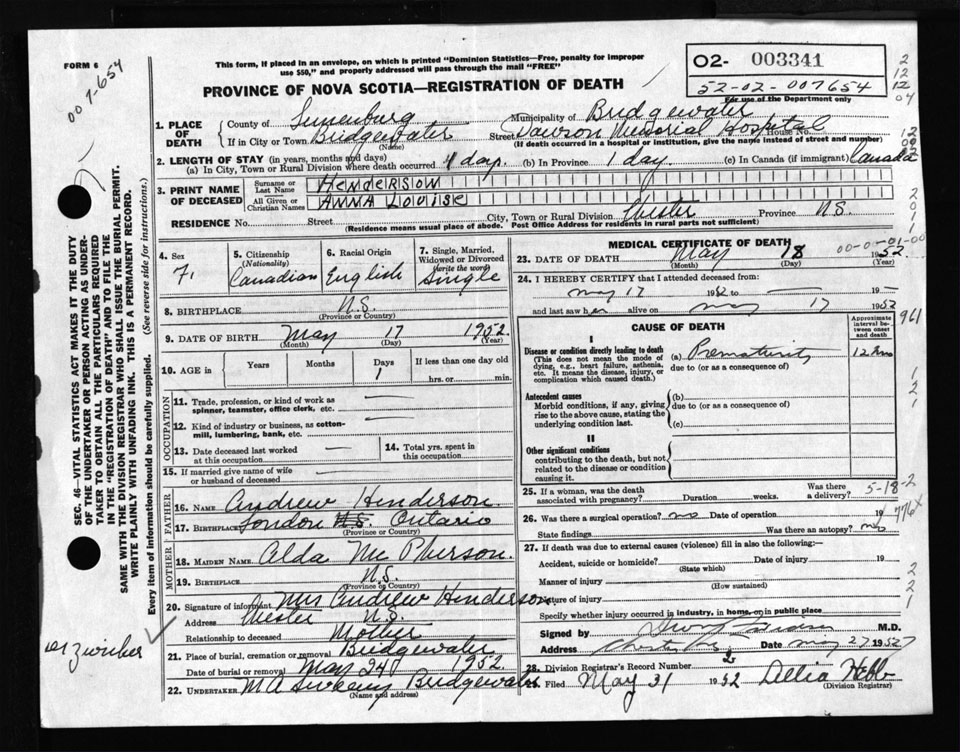 FORM 6
This form, if placed in an envelope, on which is printed "Dominion Statistics—Free, penalty for improper
use $50," and properly addressed will pass through the mail "FREE"
PROVINCE OF NOVA SCOTIA—REGISTRATION OF DEATH
O2- 003341
52-02-007654
For use of the Department only
007-654
1. PLACE OF DEATH
County of Lunenburg Municipality of Bridgewater
If in City or Town Bridgewater (Name) Street Dawson Memorial Hospital House No.
(If death occurred in a hospital or institution, give the name instead of street and number)
2. LENGTH OF STAY (in years, months and days)
(a) In City, Town or Rural Division where death occurred 1 day (b) In Province 1 day (c) In Canada (if immigrant) Canada
3. PRINT NAME OF DECEASED
Surname or Last Name HENDERSION
All Given or Christian Names ANNA LOUISE
RESIDENCE No. Street City, Town or Rural Division Chester Province N.S.
(Residence means usual place of abode. Post Office Address for residents in rural parts not sufficient)
4. Sex F.
5. Citizenship (Nationality) Canadian
6. Racial Origin English
7. Single, Married, Widowed or Divorced (write the word) Single
8. BIRTHPLACE N.S.
(Province or Country)
9. DATE OF BIRTH May 17 1952
(Month) (Day) (Year)
10. AGE in Years Months Days 1 If less than one day old hrs. or min.
OCCUPATION
11. Trade, profession, or kind of work as spinner, teamster, office clerk, etc.
12. Kind of industry or business, as cotton-mill, lumbering, bank, etc.
13. Date deceased last worked at this occupation
14. Total yrs. spent in this occupation
15. If married give name of wife or husband of deceased
FATHER
16. Name Andrew Henderson
17. Birthplace London N.S. Ontario
(Province or Country)
MOTHER
18. MAIDEN NAME Alda McPherson.
19. BIRTHPLACE N.S.
(Province or Country)
20. Signature of informant Mrs Andrew Henderson
Address Chester N.S.
Relationship to deceased Mother
21. Place of burial, cremation or removal Bridgewater
Date of burial or removal May 24 1952.
22. UNDERTAKER M A Sweeny Bridgewater
(Name and address)
MEDICAL CERTIFICATE OF DEATH
23. DATE OF DEATH May 18 1952
(Month) (Day) (Year)
00-0-01-00
24. I HEREBY CERTIFY that I attended deceased from:
May 17 1952 to 19
and last saw her alive on May 17 1952
CAUSE OF DEATH
Approximate interval between onset and death
I
Disease or condition directly leading to death
(This does not mean the mode of dying, e.g., heart failure, asthenia, etc. It means the disease, injury, or complication which caused death.)
(a) Prematurity 12 hrs
due to (or as a consequence of)
Antecedent causes
Morbid conditions, if any, giving rise to the above cause, stating the underlying condition last.
(b)
due to (or as a consequence of)
(c)
II
Other significant conditions
contributing to the death, but not related to the disease or condition causing it.
25. If a woman, was the death associated with pregnancy? Duration weeks. Was there a delivery? 5-18-2
26. Was there a surgical operation? no Date of operation 19
State findings Was there an autopsy? no
27. If death was due to external causes (violence) fill in also the following:
Accident, suicide or homicide? Date of injury 19
(State which)
Manner of injury
(How sustained)
Nature of injury
Specify whether injury occurred in industry, in home, or in public place
Signed by M.D.
Address Chester N.S. Date May 27 1952
28. Division Registrar's Record Number 2
29. Filed May 31 1952 Delia Hebb
(Division Registrar)
961
776x
SEC. 46—VITAL STATISTICS ACT MAKES IT THE DUTY
OF THE UNDERTAKER OR PERSON ACTING AS UNDER-
TAKER TO OBTAIN ALL THE PARTICULARS REQUIRED
IN THE "REGISTRATION OF DEATH" AND TO FILE THE
SAME WITH THE DIVISION REGISTRAR WHO SHALL ISSUE THE BURIAL PERMIT.
WRITE PLAINLY WITH UNFADING INK. THIS IS A PERMANENT RECORD.
Every item of information should be carefully supplied. (See reverse side for instructions.)